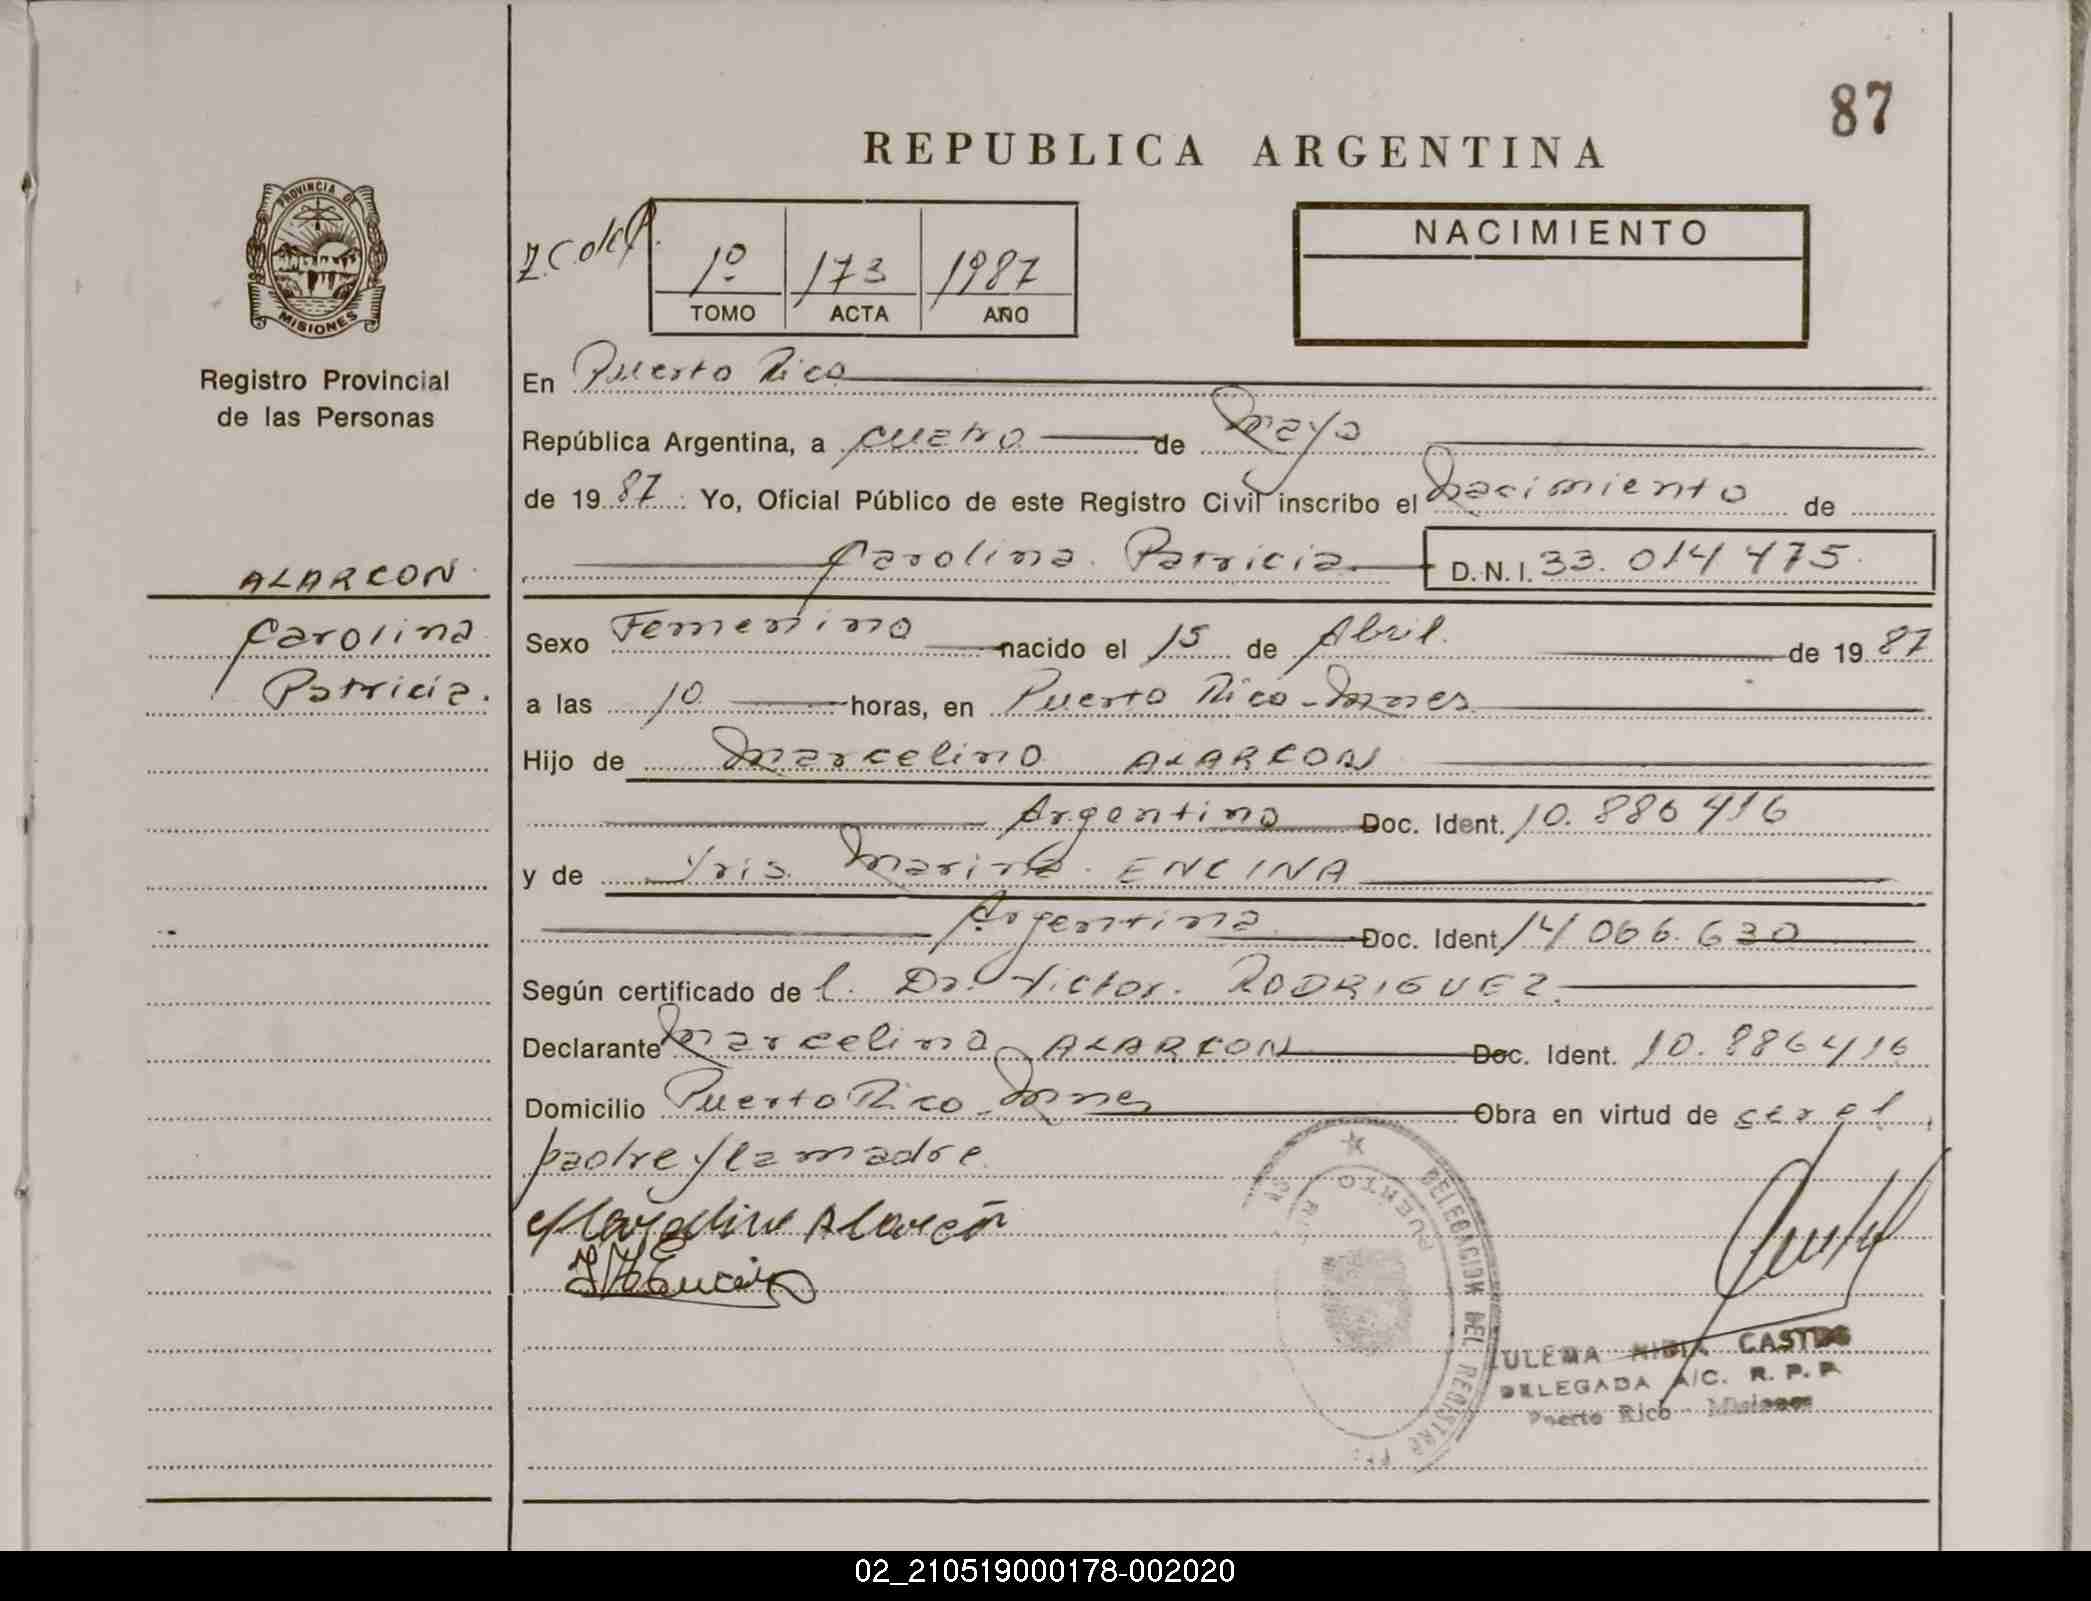 87
REPUBLICA ARGENTINA
PROVINCIA DE
MISIONES
Registro Provincial
de las Personas
1º 173 1987
TOMO ACTA AÑO
NACIMIENTO
En Puerto Rico
República Argentina, a cuatro de Mayo
de 1987 : Yo, Oficial Público de este Registro Civil inscribo el Nacimiento de
Carolina Patricia D.N.I. 33.014475
ALARCON
Carolina
Patricia.
Sexo Femenino nacido el 15 de Abril de 1987
a las 10 horas, en Puerto Rico - Mnes
Hijo de Marcelino ALARCON
Argentino Doc. Ident. 10.886416
y de Yris Marina ENCINA
Argentina Doc. Ident. 14 066.630
Según certificado de l. Dr. Victor. RODRIGUEZ
Declarante Marcelino ALARCON Doc. Ident. 10.886416
Domicilio Puerto Rico - Mnes Obra en virtud de ser el
padre y la madre
Marcelino Alarcón
DELEGACION DEL REGISTRO
PUERTO RI
ULEMA NIDIA CASTRO
DELEGADA A/C. R. P. P
Puerto Rico Misiones
02_210519000178-002020